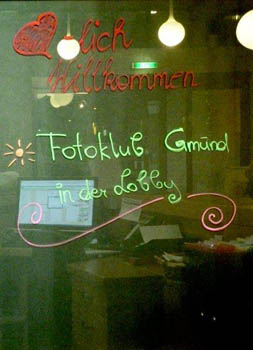 Herzlich
Willkommen
Fotoklub Gmünd
in der Lobby